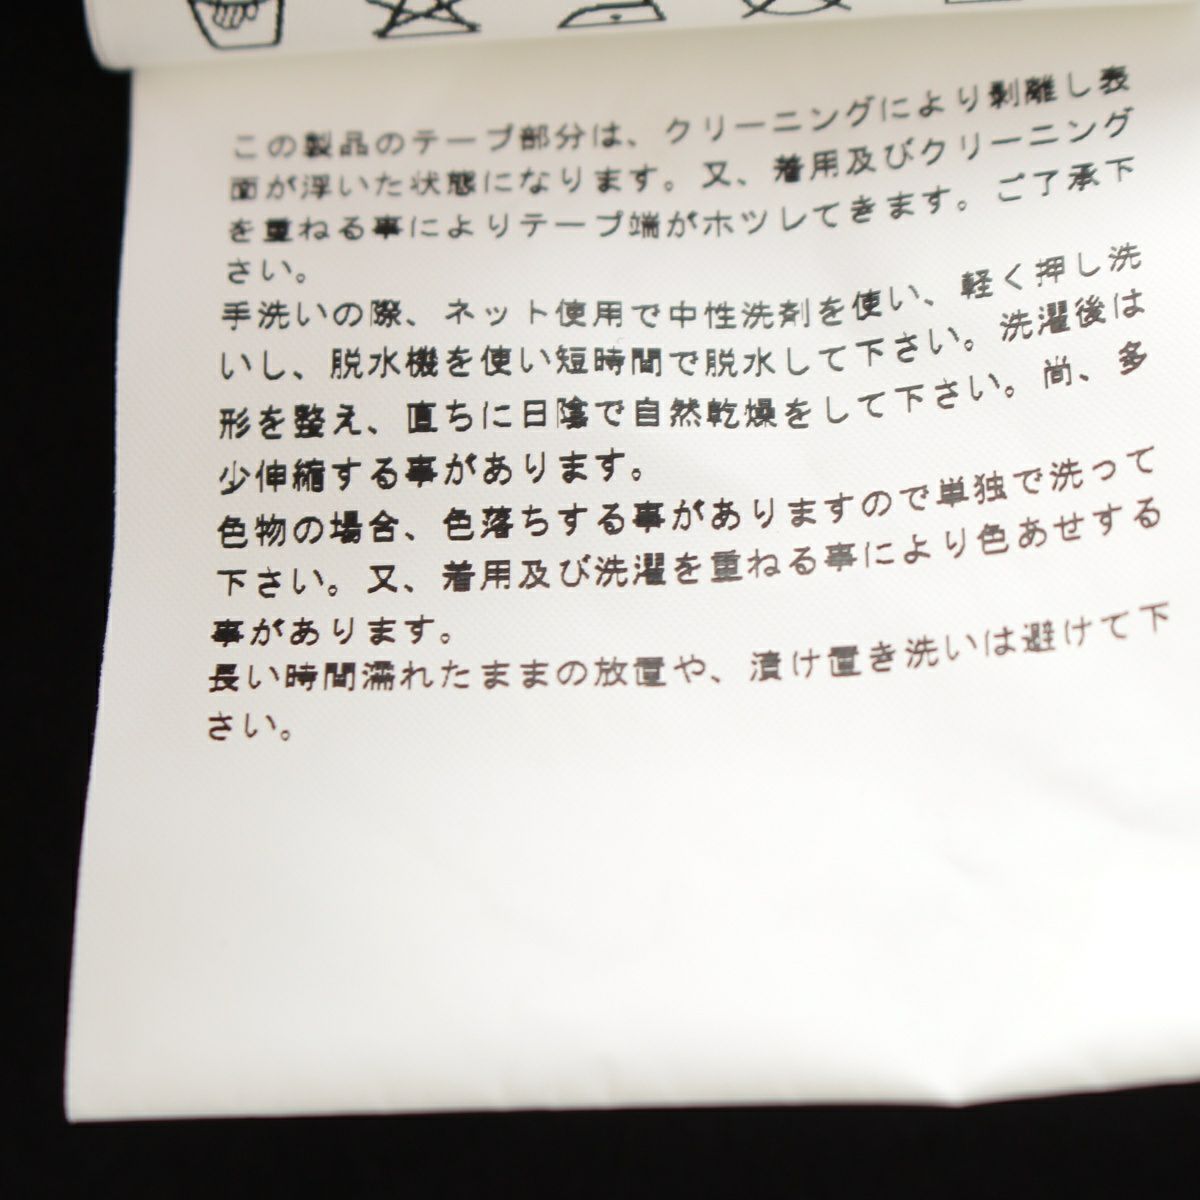 この製品のテープ部分は、クリーニングにより剥離し表
面が浮いた状態になります。又、着用及びクリーニング
を重ねる事によりテープ端がホツレてきます。ご了承下
さい。
手洗いの際、ネット使用で中性洗剤を使い、軽く押し洗
いし、脱水機を使い短時間で脱水して下さい。洗濯後は
形を整え、直ちに日陰で自然乾燥をして下さい。尚、多
少伸縮する事があります。
色物の場合、色落ちする事がありますので単独で洗って
下さい。又、着用及び洗濯を重ねる事により色あせする
事があります。
長い時間濡れたままの放置や、漬け置き洗いは避けて下
さい。